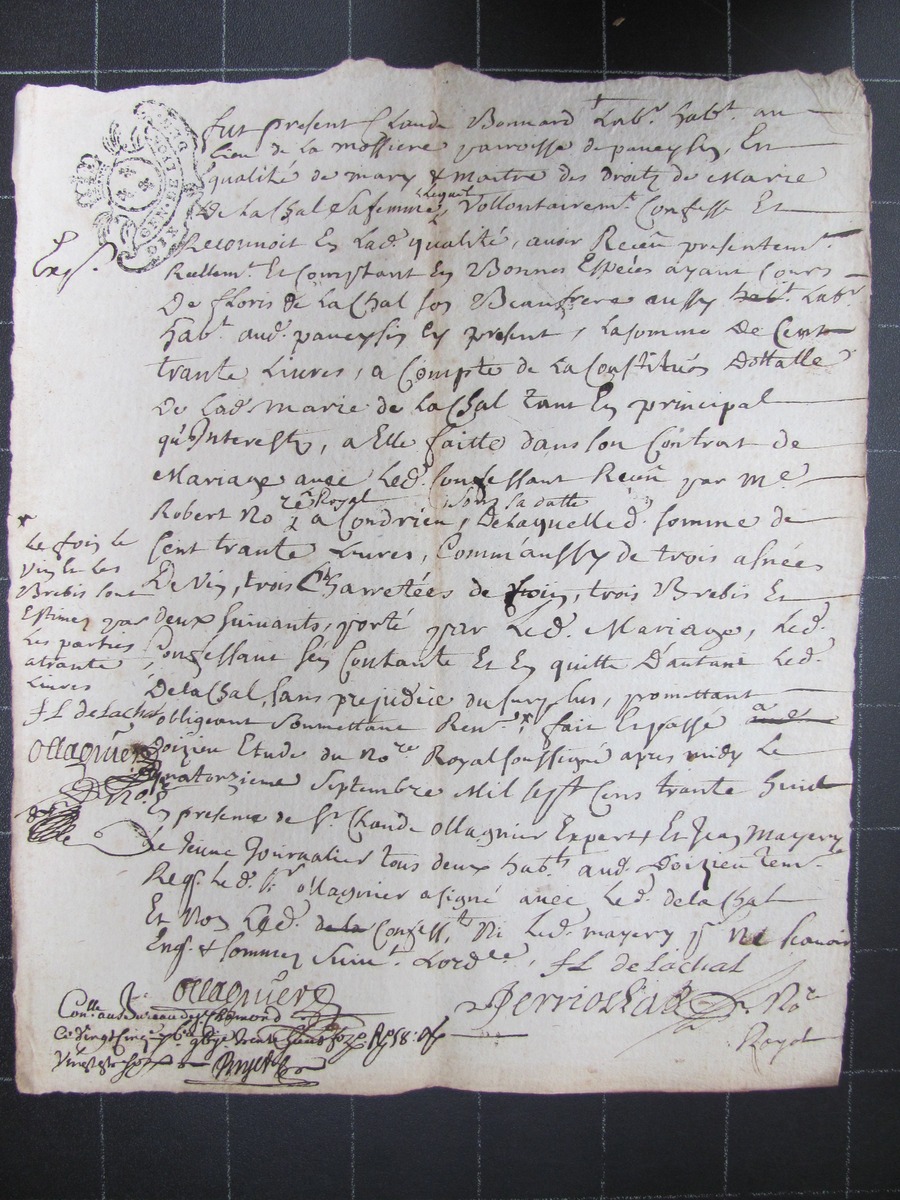 fut present Claude Bonnard Labr. habt. au
lieu de la mossiere parroisse de paveysin, En
qualité de mary & maitre des droitz de Marie
De la Chal sa femme, Lequel Vollontairemt. Confesse Et
Reconnoit En lade. qualité, avoir Receu presentemt.
Reellemt. Et Comptant En Bonnes Especes ayant Cours
De floris De la Chal son Beaufrere aussy habt. Labr
habt. aud. paveysin Ey present, la somme De Cent
trante Livres, a Compte de la Constitu͠on Dottalle
De lade. Marie de la Chal tant En principal
qu'Interestz, a Elle faitte dans son Contrat de
Mariage avec Led. Confessant Receu par Me.
Robert Nore Royal a Condrieu, sous sa datte, De laquelle d. somme de
Cent trante Livres, Comm'aussy de trois asnées
De Vin, trois Charretées de foin, trois Brebis Et
deux suivants, porté par Led. Mariage, Led.
Confessant s'en Contante Et En quitte D'autant Led.
De la Chal, sans prejudice du surplus, promettant
obligeant soumettant Renont. fait Et passé a
Doizieu Etude du Nore Royal soussigné apres midy Le
quatorzieme Septembre Mil sept Cens trante huit
En presence de Sr. Claude ollagnier Expert Et Jean Mayery
Le Jeune Journalier tous deux habts. aud. Doizieu temr.
Reqs. Led. Sr ollagnier a signé avec Led. de la Chal
Et Non Led. de la Confesst. Ni Led. mayery pr ne scavoir
Enq. & sommez suivt. Lordce, fL de lachal
ollagnier
Perriochad Nore
Royal
Exp.
GENERALITE
Le foin le
Vin & les
Brebis sont
Estimez par
Les parties
a trante
Livres
fL de lachal
ollagnier
Nore
Conlle. au Bureau de St Chamond
Ce Vingt Cinq 7bre